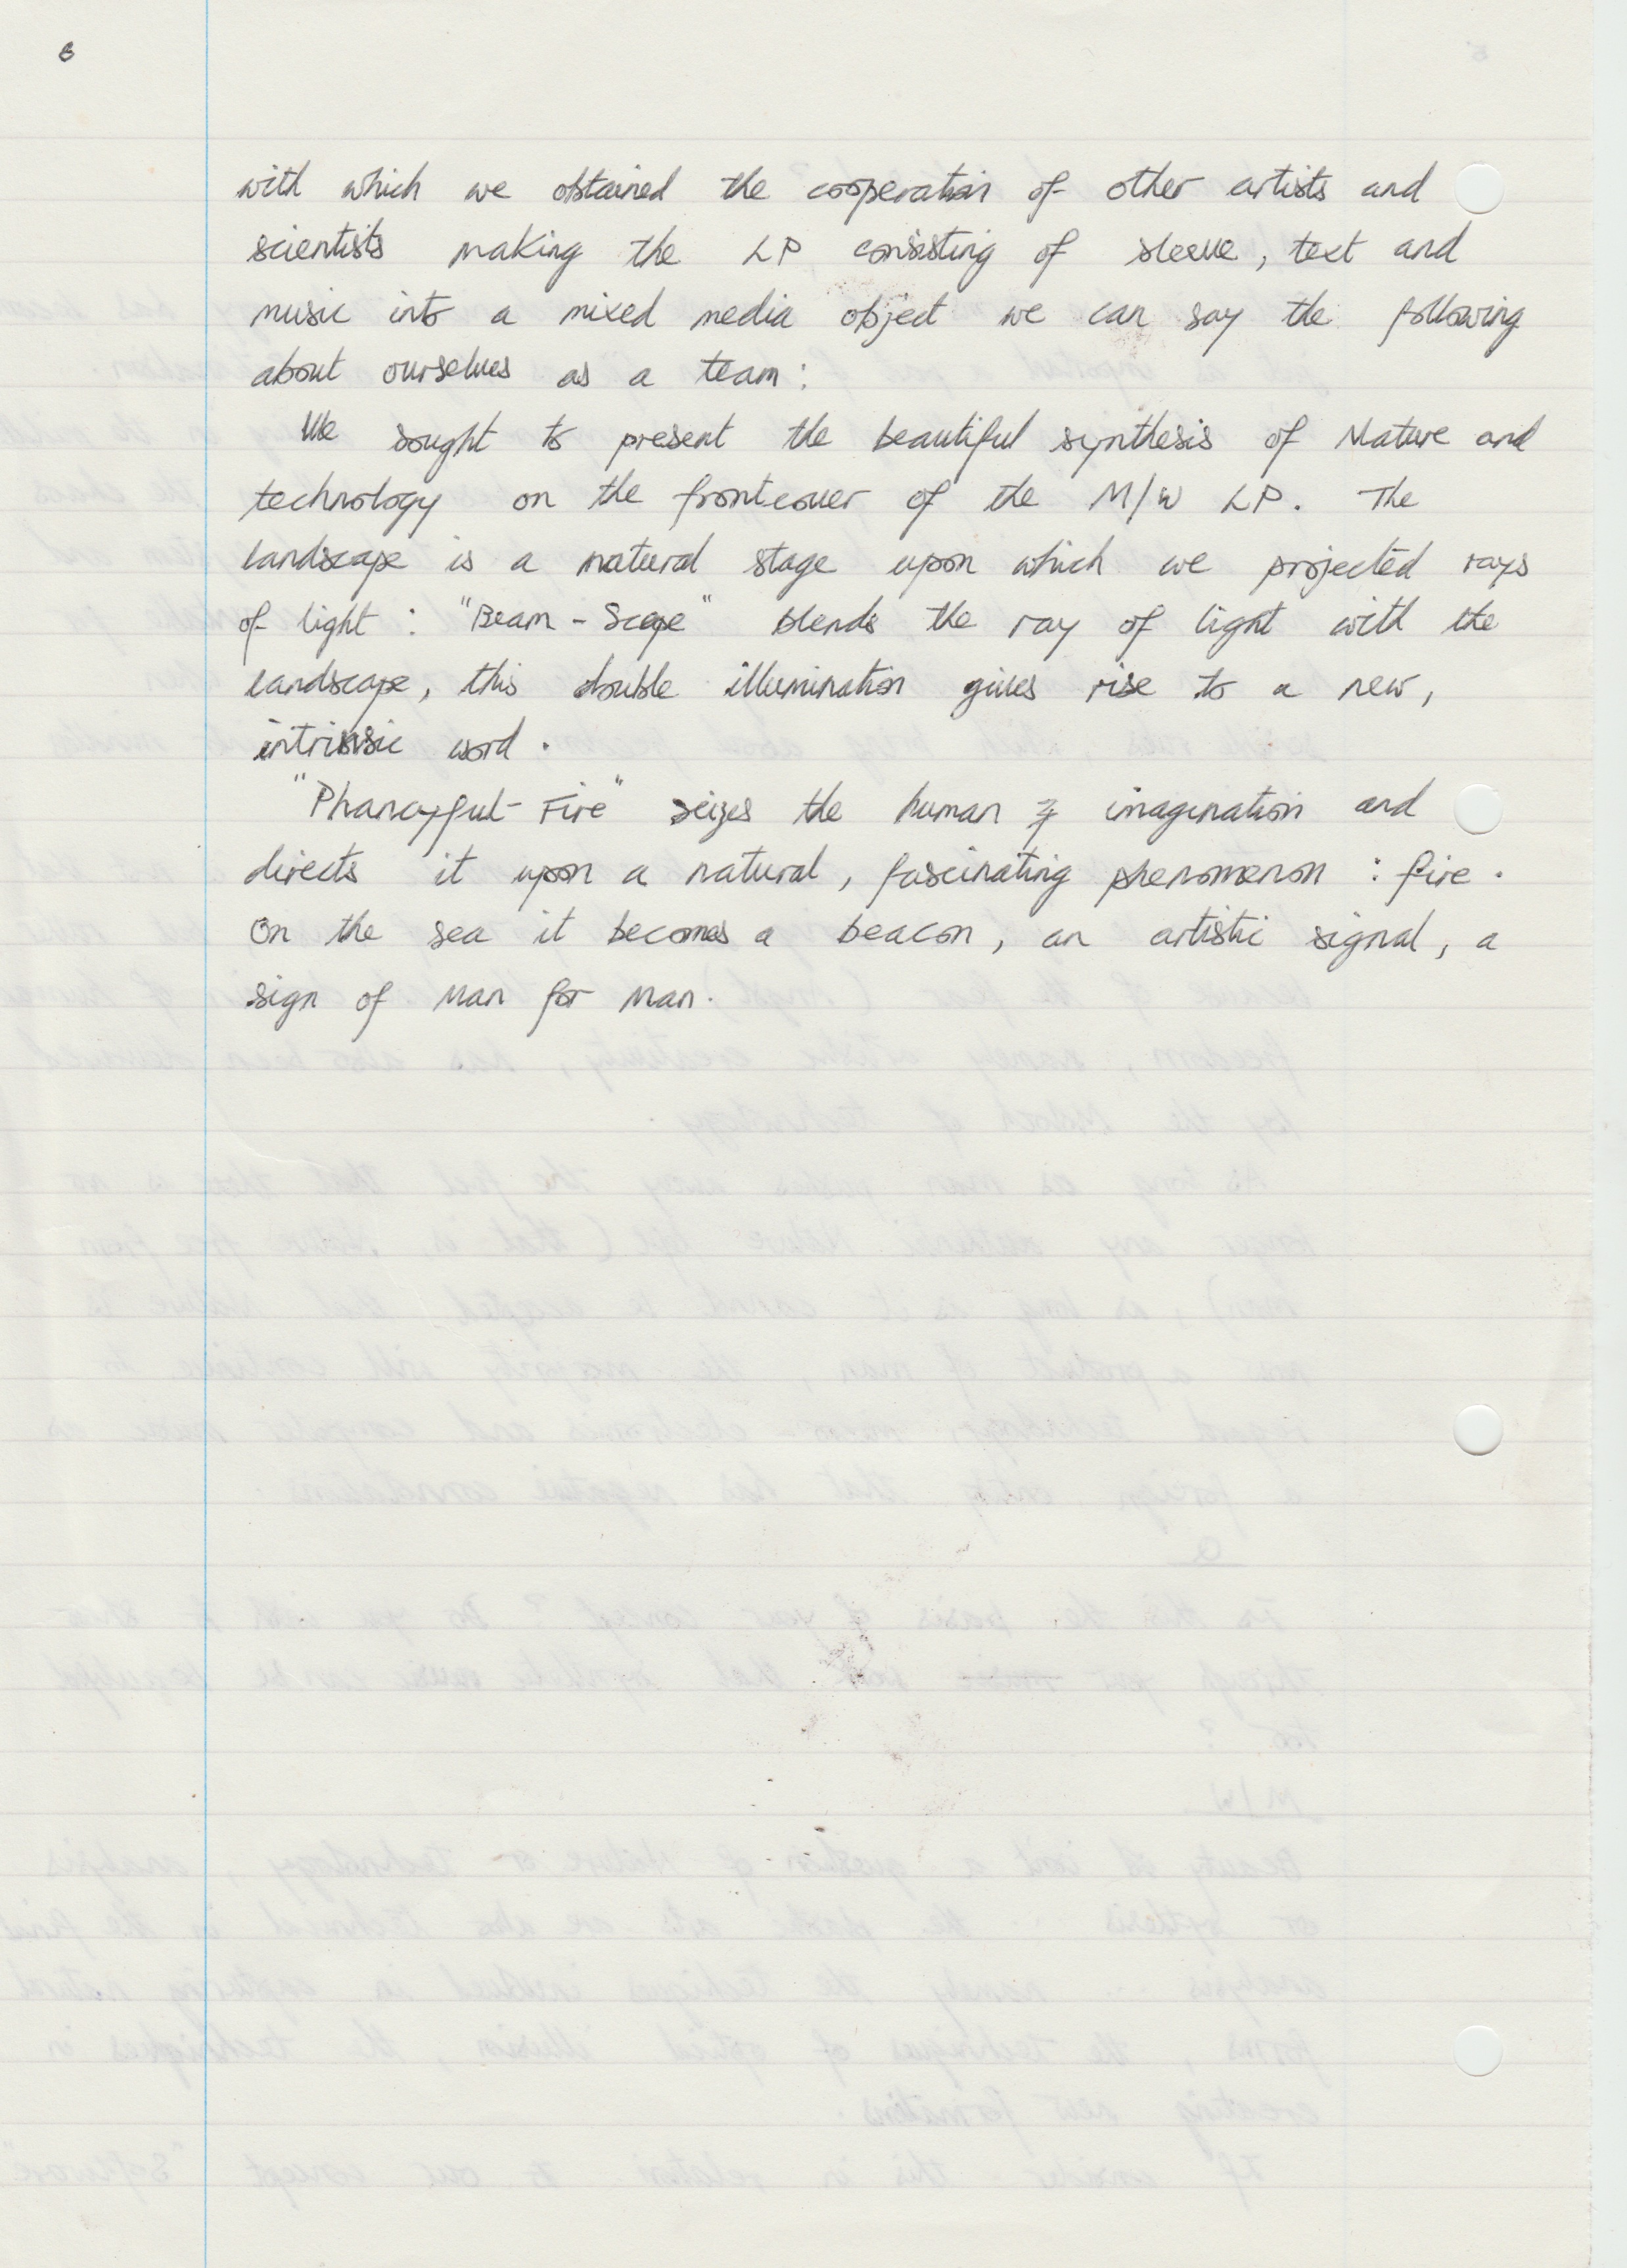 6
with which we obstained the cooperation of other artists and
scientists making the LP consisting of sleeve, text and
music into a mixed media object we can say the following
about ourselves as a team:
We sought to present the beautiful synthesis of Nature and
technology on the frontcover of the M/W LP. The
landscape is a natural stage upon which we projected rays
of light : "Beam - Scape" blends the ray of light with the
landscape, this double illumination gives rise to a new,
intrinsic word.
"Phancyful-Fire" seizes the human imagination and
directs it upon a natural, fascinating phenomenon : fire.
On the sea it becomes a beacon, an artistic signal, a
sign of Man for Man.